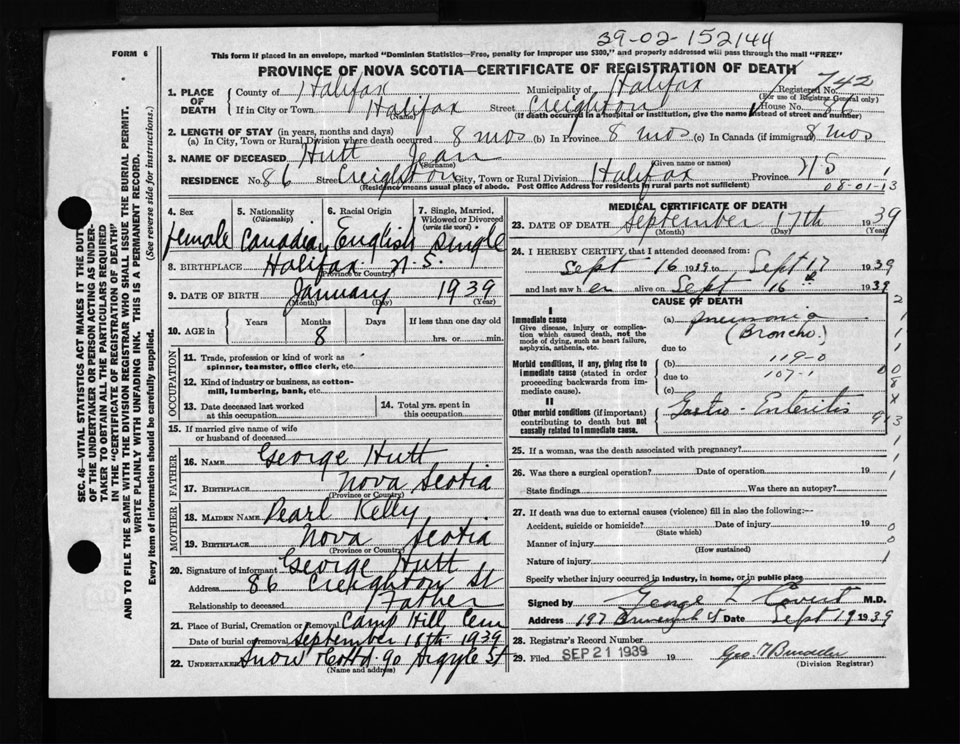 39-02-152144
FORM 6
This form if placed in an envelope, marked "Dominion Statistics—Free, penalty for improper use $300," and properly addressed will pass through the mail "FREE"
PROVINCE OF NOVA SCOTIA—CERTIFICATE OF REGISTRATION OF DEATH
1. PLACE OF DEATH County of Halifax Municipality of Halifax Registered No. 742
(For use of Registrar General only)
If in City or Town Halifax Street Creighton House No. 86
(Name) (If death occurred in a hospital or institution, give the name instead of street and number)
2. LENGTH OF STAY (in years, months and days)
(a) In City, Town or Rural Division where death occurred 8 mos (b) In Province 8 mos (c) In Canada (if immigrant) 8 mos
3. NAME OF DECEASED Hutt Jean
(Surname) (Given name or names)
RESIDENCE No. 86 Street Creighton City, Town or Rural Division Halifax Province N S
(Residence means usual place of abode. Post Office Address for residents in rural parts not sufficient)
08-01-13
4. Sex 5. Nationality (Citizenship) 6. Racial Origin 7. Single, Married, Widowed or Divorced (write the word)
female Canadian English Single
8. BIRTHPLACE Halifax N. S.
(Province or Country)
9. DATE OF BIRTH January 1939
(Month) (Day) (Year)
10. AGE in Years Months Days If less than one day old
8 hrs. or min.
OCCUPATION
11. Trade, profession or kind of work as spinner, teamster, office clerk, etc.
12. Kind of industry or business, as cotton-mill, lumbering, bank, etc.
13. Date deceased last worked at this occupation
14. Total yrs. spent in this occupation
15. If married give name of wife or husband of deceased
FATHER
16. NAME George Hutt
17. BIRTHPLACE Nova Scotia
(Province or Country)
MOTHER
18. MAIDEN NAME Pearl Kelly
19. BIRTHPLACE Nova Scotia
(Province or Country)
20. Signature of informant George Hutt
Address 86 Creighton St
Relationship to deceased Father
21. Place of Burial, Cremation or Removal Camp Hill Cem
Date of burial or removal September 18th 1939
22. UNDERTAKER Snow & Co Ltd 90 Argyle St
(Name and address)
MEDICAL CERTIFICATE OF DEATH
23. DATE OF DEATH September 17th 1939
(Month) (Day) (Year)
24. I HEREBY CERTIFY, that I attended deceased from:
Sept 16 1939 to Sept 17 1939
and last saw her alive on Sept 16 1939
CAUSE OF DEATH
I
Immediate cause
Give disease, injury or complication which caused death, not the mode of dying, such as heart failure, asphyxia, asthenia, etc.
(a) pneumonia
(Broncho.)
due to
Morbid conditions, if any, giving rise to immediate cause (stated in order proceeding backwards from immediate cause).
(b) 119-0
due to 107-1
(c)
II
Other morbid conditions (if important) contributing to death but not causally related to immediate cause.
Gastro-Enteritis
25. If a woman, was the death associated with pregnancy?
26. Was there a surgical operation? Date of operation 19
State findings Was there an autopsy?
27. If death was due to external causes (violence) fill in also the following:—
Accident, suicide or homicide? Date of injury 19
(State which)
Manner of injury
(How sustained)
Nature of injury
Specify whether injury occurred in industry, in home, or in public place
Signed by George L Covert M.D.
Address 197 St Date Sept 19 1939
28. Registrar's Record Number
29. Filed SEP 21 1939 19 Geo.
(Division Registrar)
SEC. 46—VITAL STATISTICS ACT MAKES IT THE DUTY
OF THE UNDERTAKER OR PERSON ACTING AS UNDER-
TAKER TO OBTAIN ALL THE PARTICULARS REQUIRED
IN THE "CERTIFICATE OF REGISTRATION OF DEATH"
AND TO FILE THE SAME WITH THE DIVISION REGISTRAR WHO SHALL ISSUE THE BURIAL PERMIT.
WRITE PLAINLY WITH UNFADING INK. THIS IS A PERMANENT RECORD.
Every item of information should be carefully supplied. (See reverse side for instructions.)